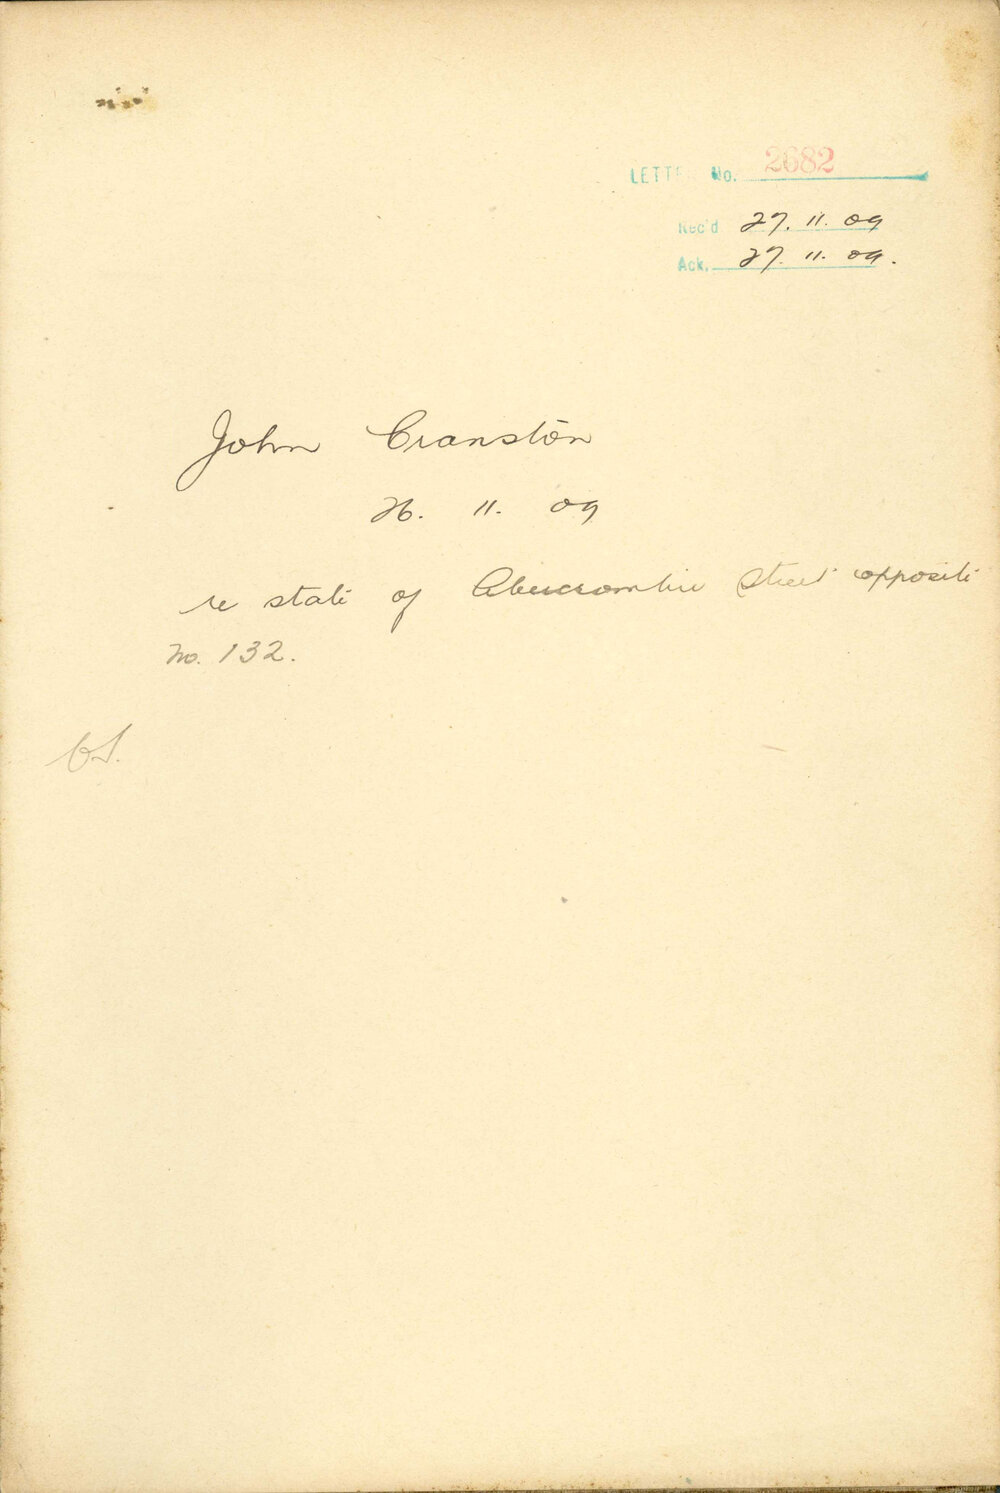 LETTER No. 2682
Rec'd 27. 11. 09
Ack. 27. 11. 09.
John Cranston
26. 11. 09
re state of Abercrombie Street opposite
No. 132.